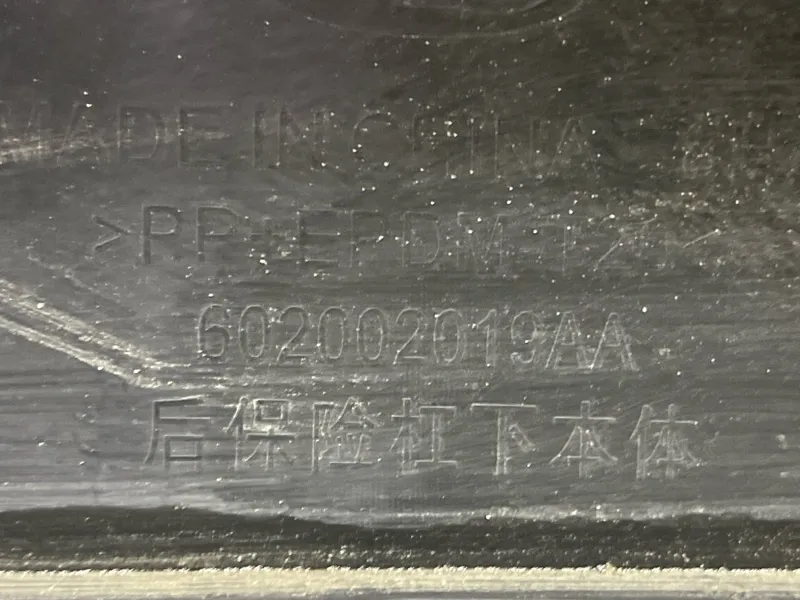 MADE IN CHINA
>PP+EPDM-T
602002019AA
后保险杠下本体